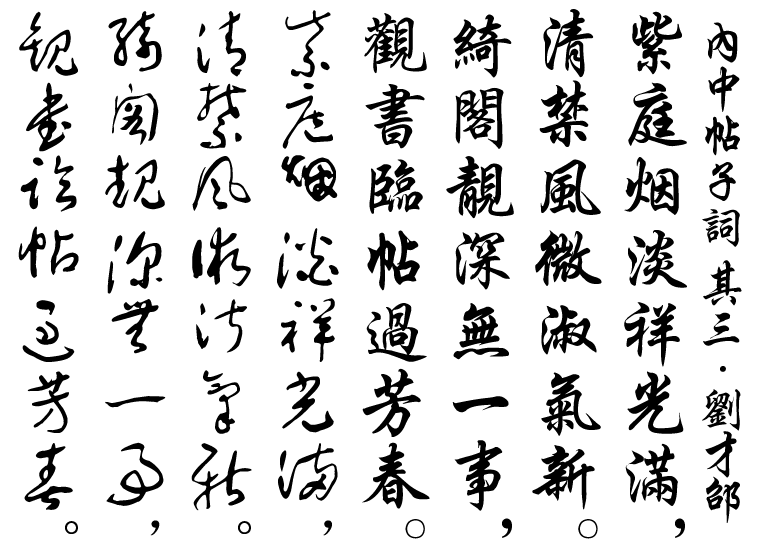 內中帖子詞 其三·劉才邵
紫庭烟淡祥光滿，
清禁風微淑氣新。
綺閣靚深無一事，
觀書臨帖過芳春。
紫庭烟淡祥光滿，
清禁風微淑氣新。
綺閣靚深無一事，
觀書臨帖過芳春。